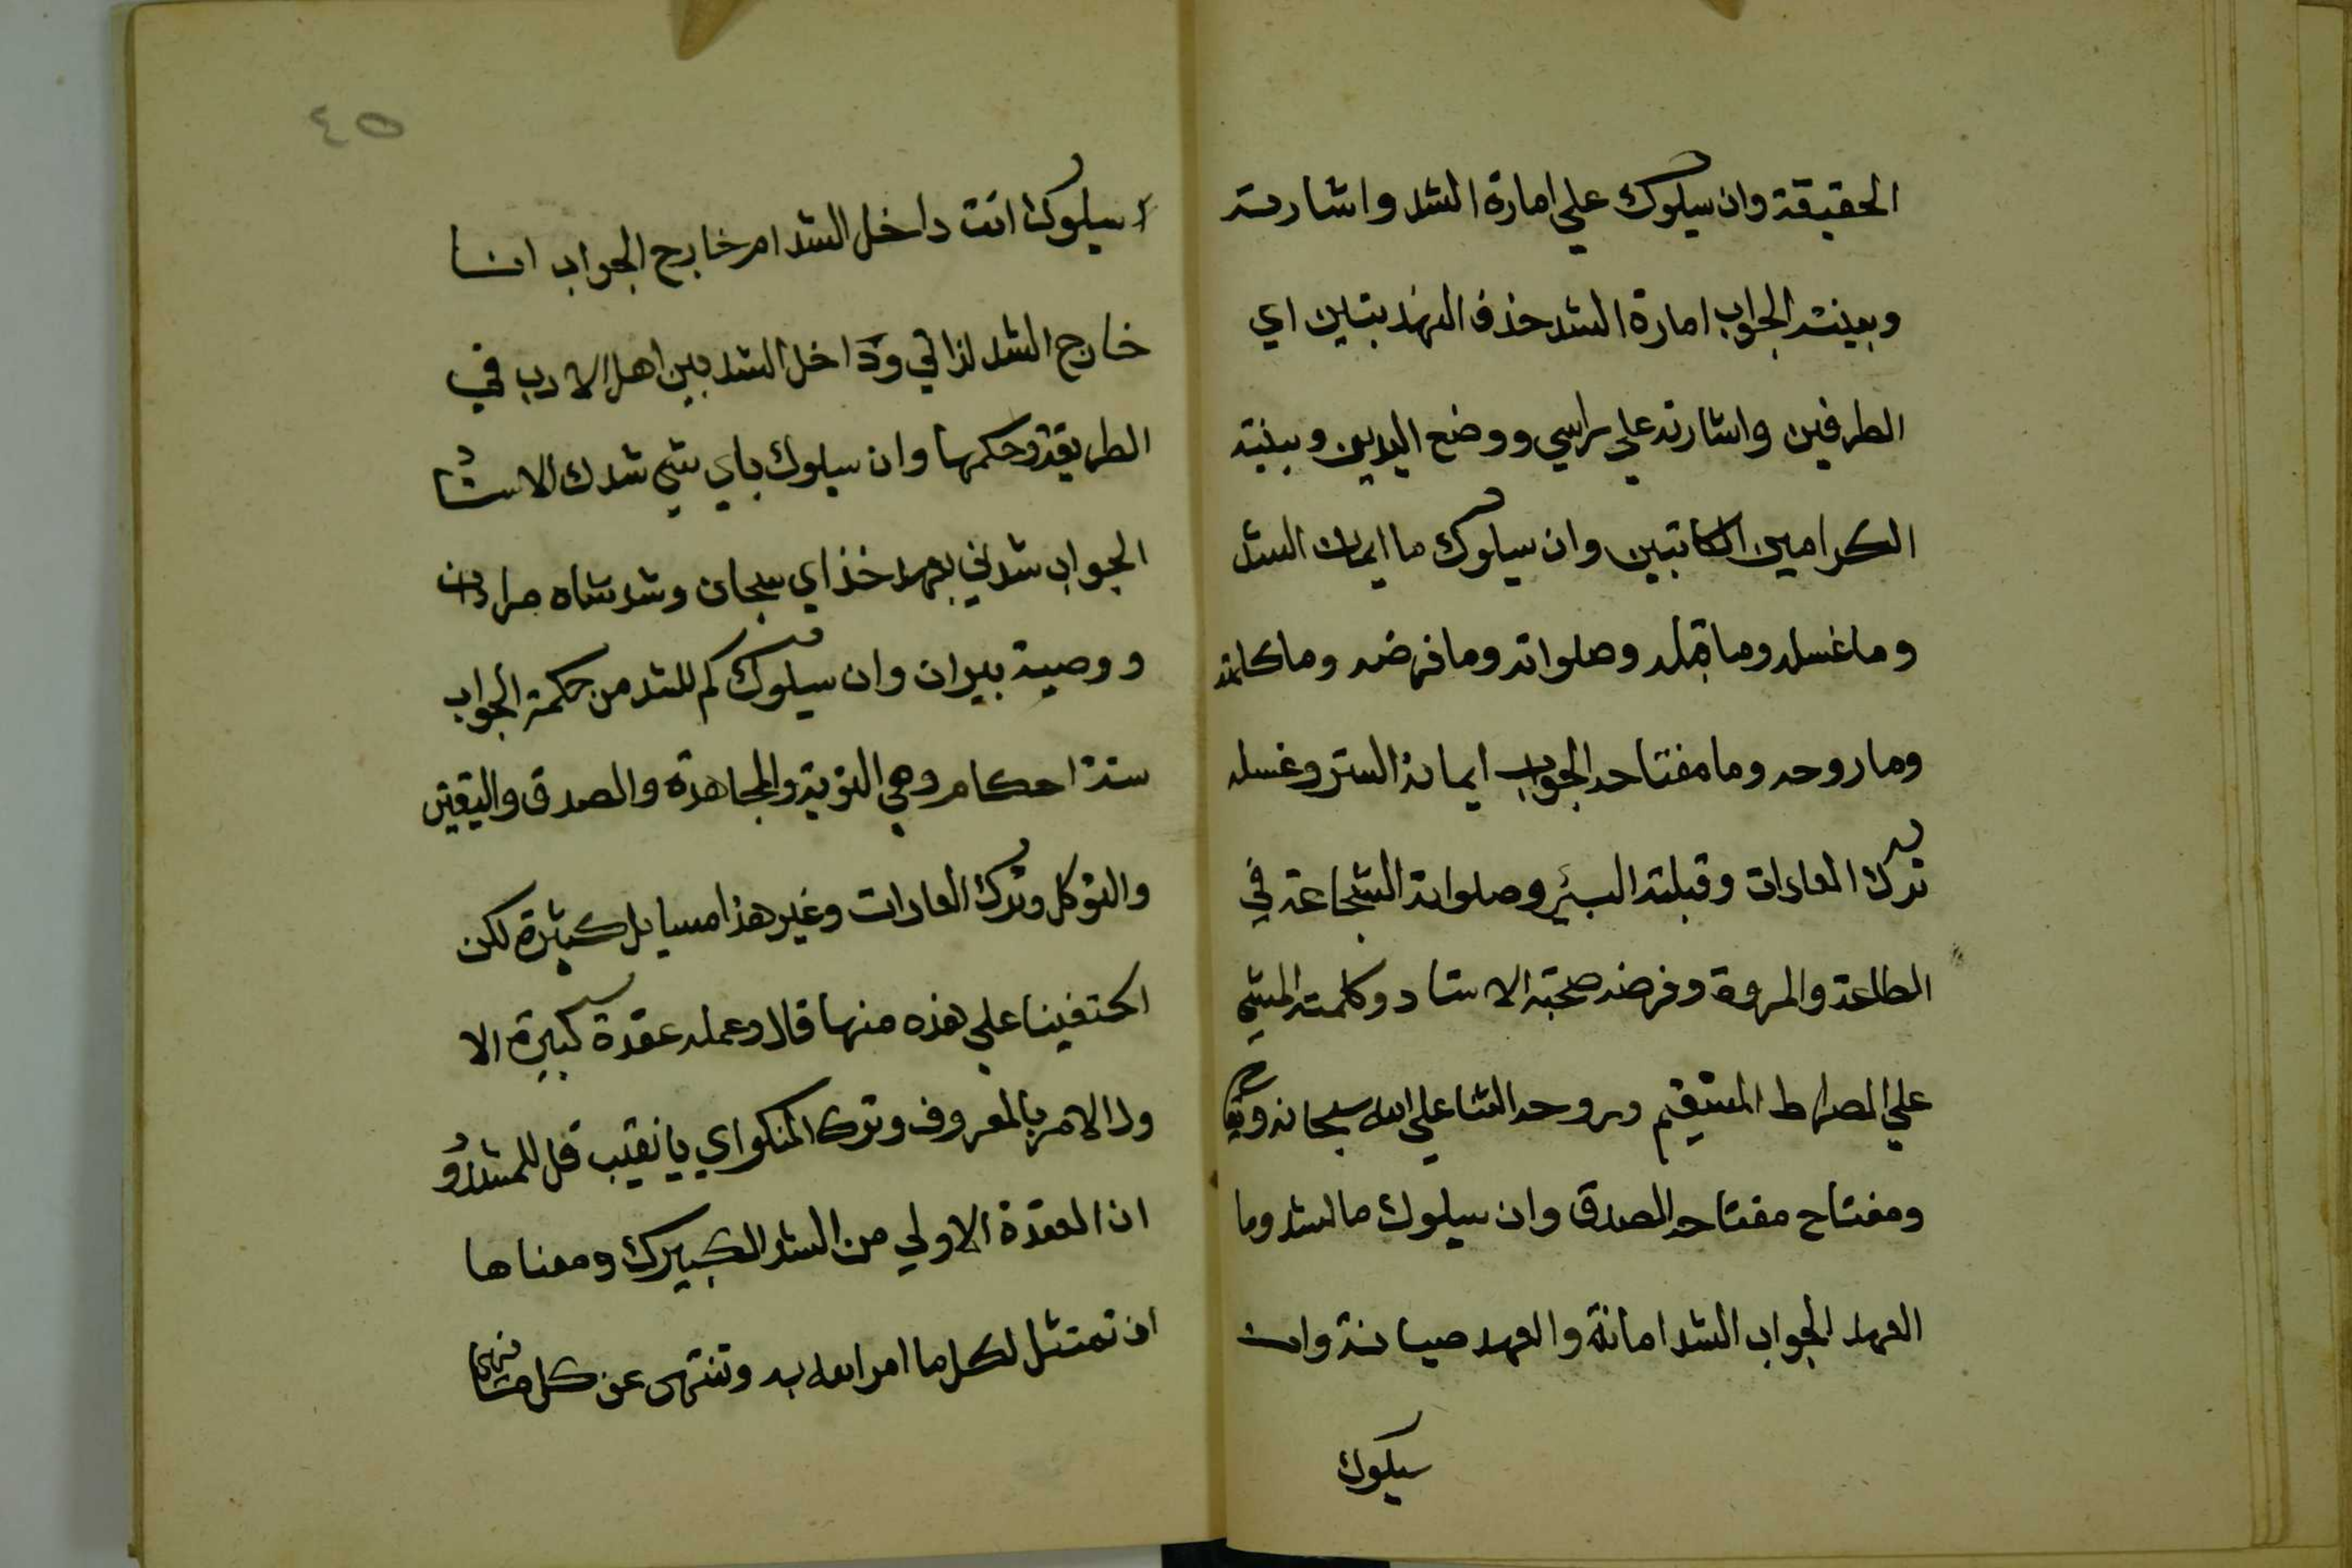 الحقيقة وان سيلوك علي امارة الشد واشارته
وبينته الجواب امارة الشد خذف الهذبتين اي
الطرفين واشارته علي راسي ووضع اليدين وبينته
الكرامين الكاتبين وان سيلوك ما ايمان الشد
وما غسله وما قبلد وصلواته وما فرضه وما كلمته
وما روحه وما مفتاحه الجواب ايمانه الستر وغسله
ترك العادات وقبلته البير وصلواته الشجاعة في
الطاعة والمروة وفرضه صحبة الاستاد وكلمته المشي
علي الصراط المستقيم وروحه الثنا علي الله سبحانه وتعا
ومفتاح مفتاحه الصدق وان سيلوك ما الشد وما
العهد الجواب الشد امانة والعهد صيانة وان
سيلوك
٤٥
سيلوك انت داخل الشد ام خارج الجواب انا
خارج الشد لذاتي وداخل الشد بين اهل الادب في
الطريقة وحكمها وان سيلوك باي شي شدك الاستاد
الجواب شدني بعهد خذاي سبحان وشد شاه مردان
ووصية بيران وان سيلوك كم للشد من حكمة الجواب
ستة احكام وهي التوبة والمجاهدة والصدق واليقين
والتوكل وترك العادات وغير هذا مسايل كثيرة لكن
اكتفينا علي هذه منها قال وعمله عقدة كبيرة الا
ولا الامر بالمعروف وترك المنكر اي يا نقيب قل للمشدود
ان العقدة الاولي من الشد الكبيرك ومعناها
ان تمتثل لكل ما امر الله به وتنتهي عن كل ما نهي